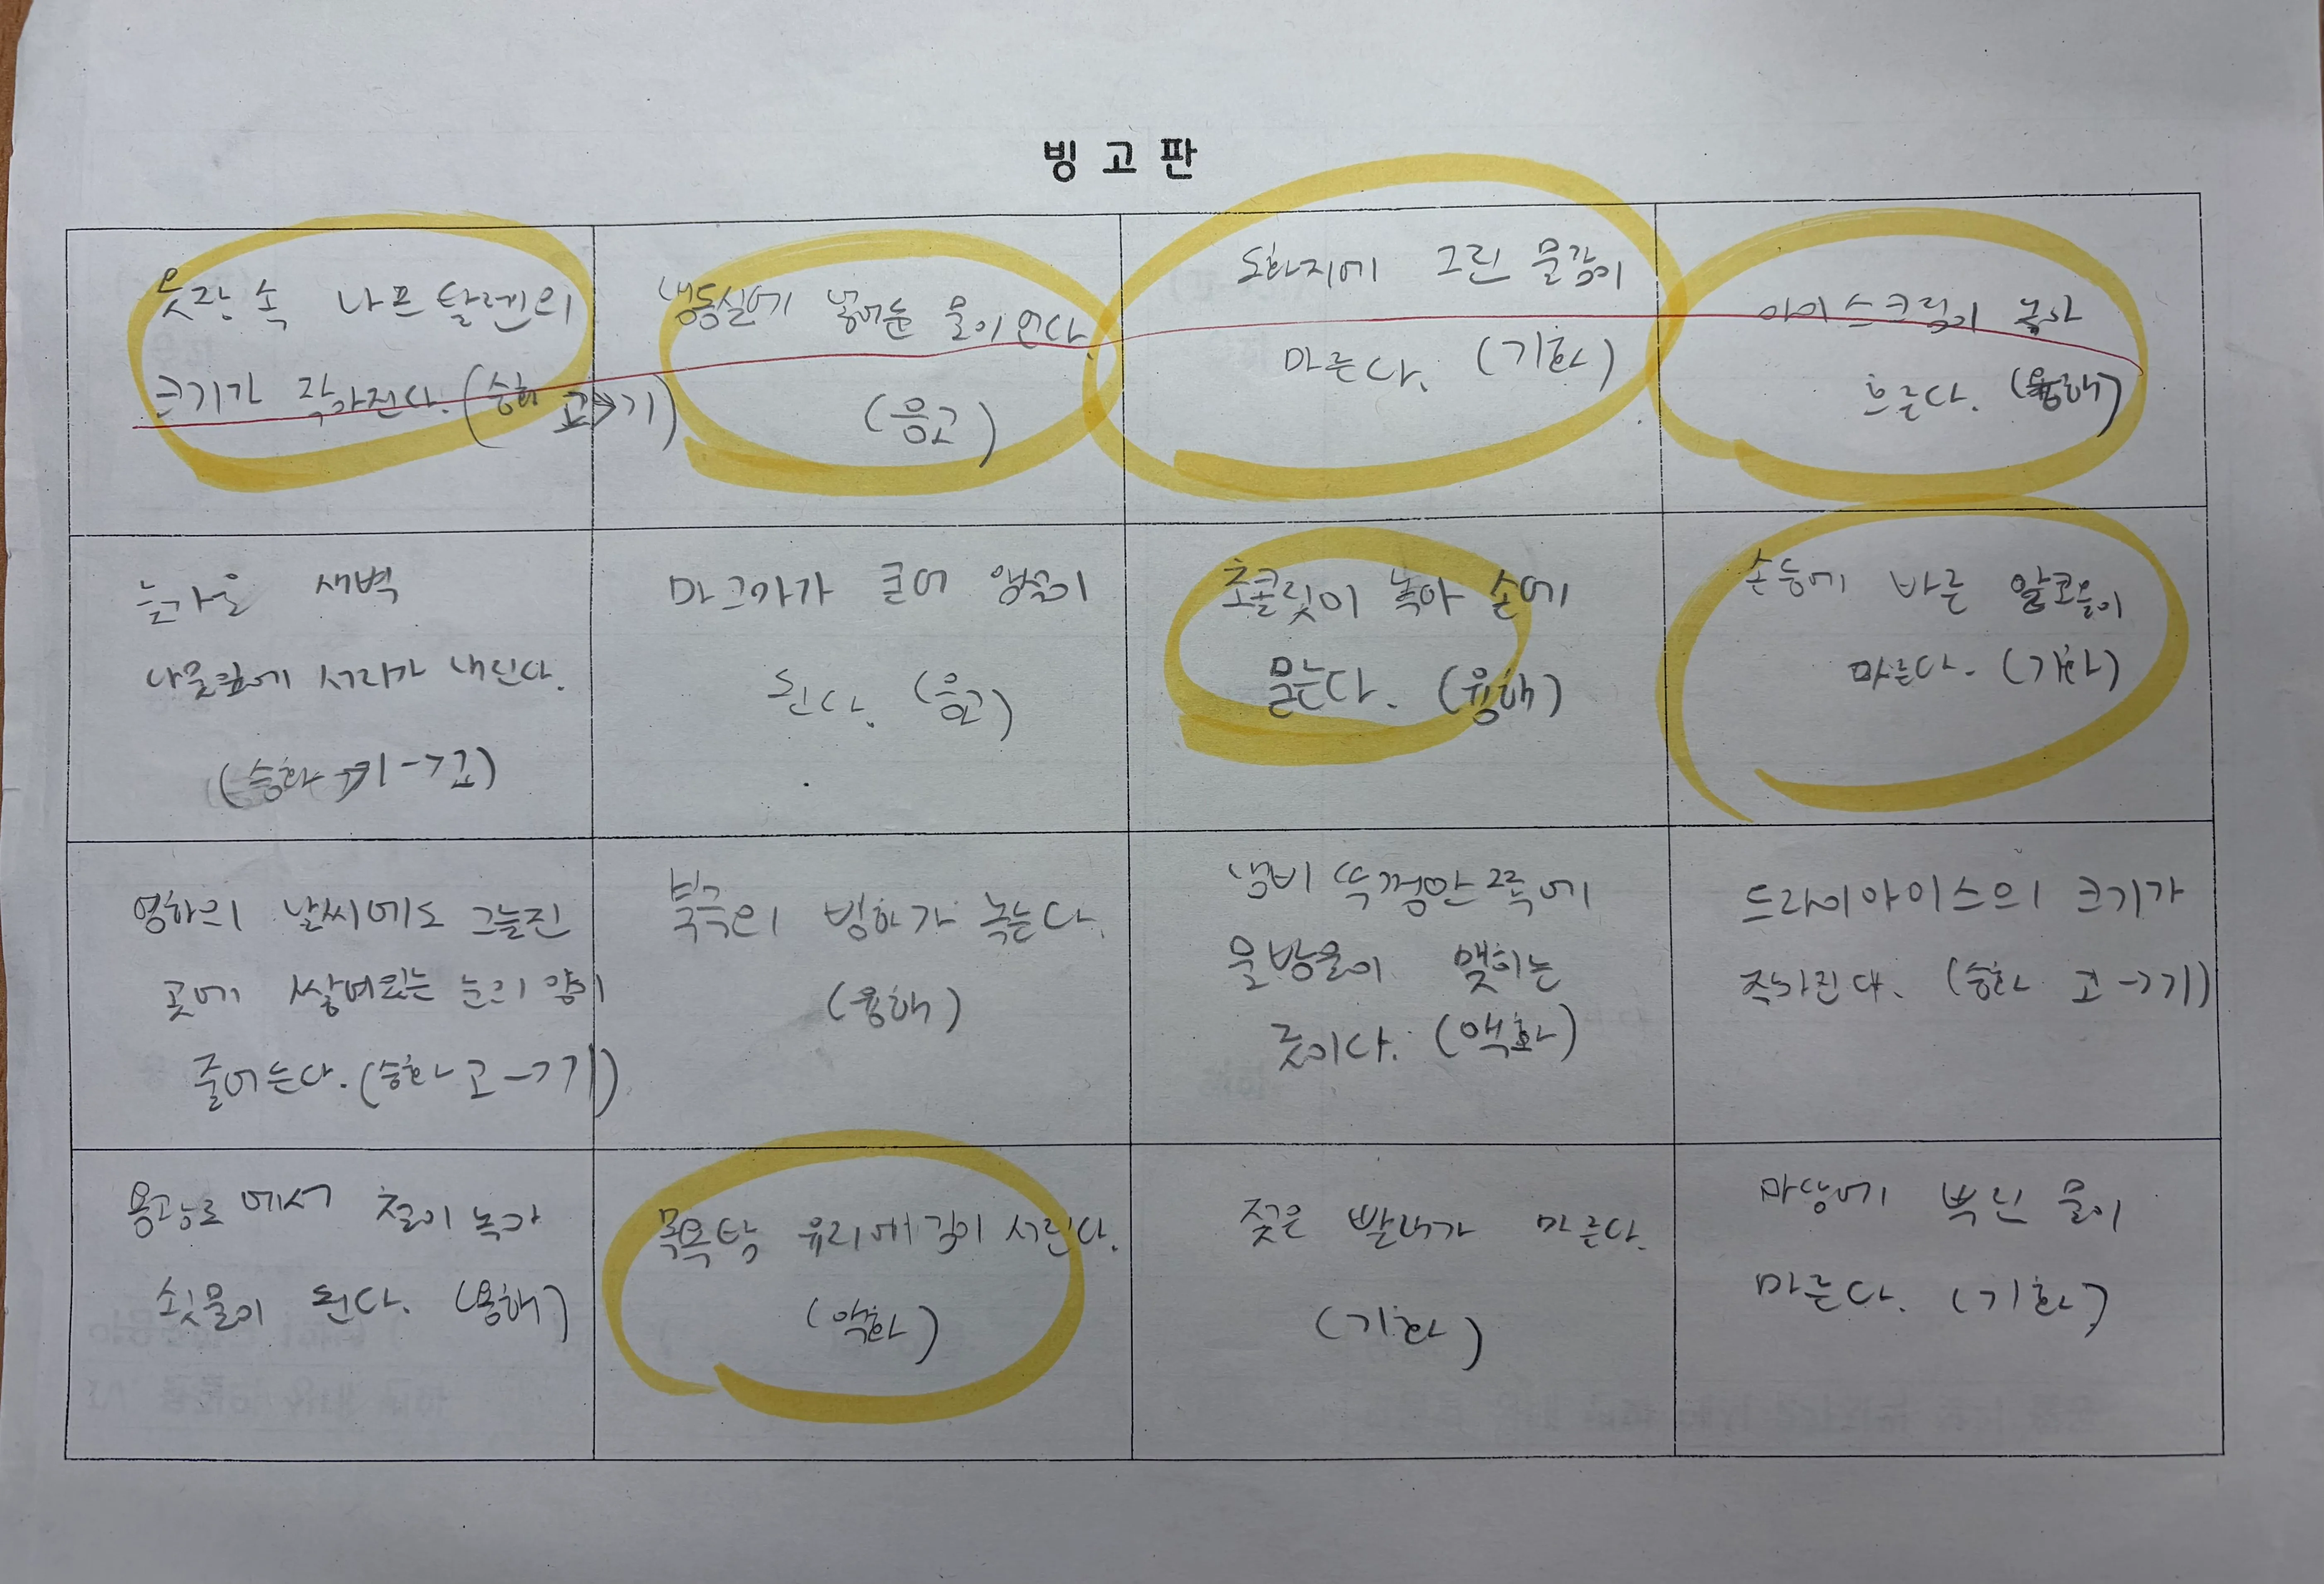 빙고판
옷장 속 나프탈렌의
크기가 작아진다. (승화 고→기)
냉동실에 넣어둔 물이 언다.
(응고)
도화지에 그린 물감이
마른다. (기화)
아이스크림이 녹아
흐른다. (융해)
늦가을 새벽
나뭇잎에 서리가 내린다.
(승화 기→고)
마그마가 굳어 암석이
된다. (응고)
초콜릿이 녹아 손에
묻는다. (융해)
손등에 바른 알코올이
마른다. (기화)
영하의 날씨에도 그늘진
곳에 쌓여있는 눈의 양이
줄어든다. (승화 고→기)
북극의 빙하가 녹는다.
(융해)
냄비 뚜껑안쪽에
물방울이 맺히는
것이다. (액화)
드라이아이스의 크기가
작아진다. (승화 고→기)
용광로에서 철이 녹아
쇳물이 된다. (융해)
목욕탕 유리에 김이 서린다.
(액화)
젖은 빨래가 마른다.
(기화)
마당에 뿌린 물이
마른다. (기화)